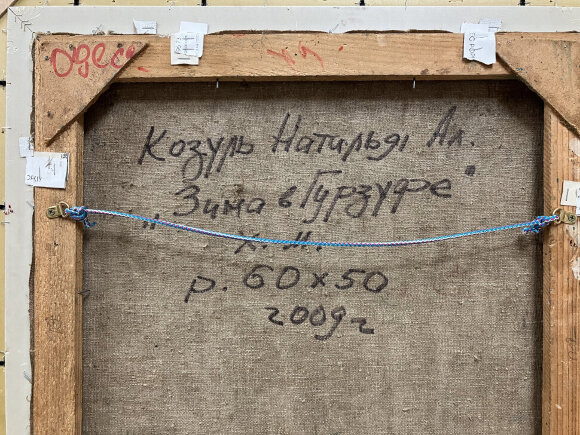 Одесс
Козуль Натильді Ал.
"Зима в Гурзуфе"
х. м.
р. 60х50
2009г